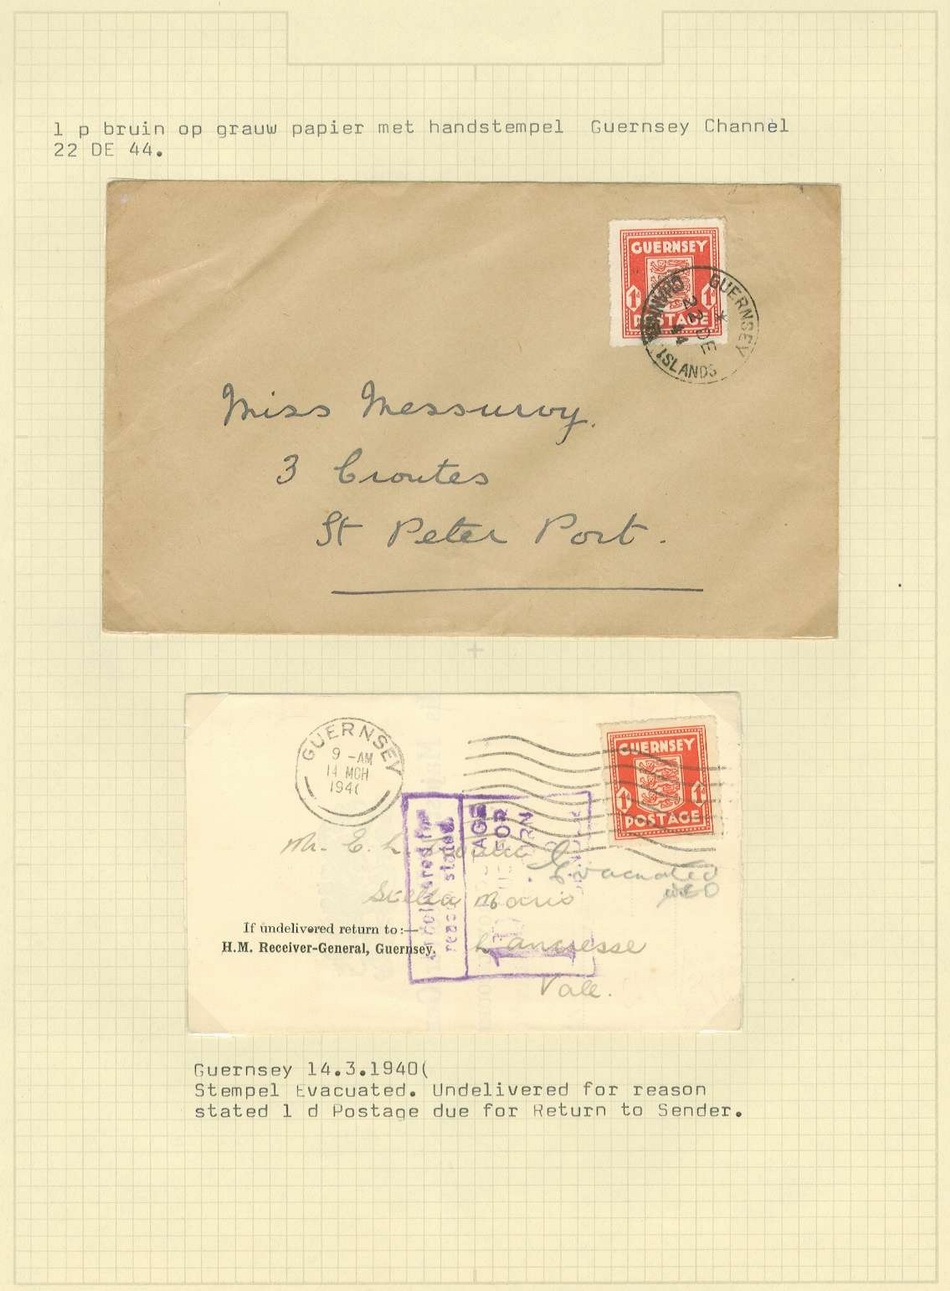 1 p bruin op grauw papier met handstempel Guernsey Channel
22 DE 44.
GUERNSEY
1D 1D
POSTAGE
GUERNSEY
CHANNEL
ISLANDS
22 DE
44
Miss Messurvy.
3 Croutes
St Peter Port.
GUERNSEY
9 -AM
14 MCH
194
GUERNSEY
1D 1D
POSTAGE
Undelivered for
reason stated.
AGE
FOR
URN
Mr. E. L.
Evacuated
Stella Maris
If undelivered return to:—
H.M. Receiver-General, Guernsey.
L'ancresse
Vale.
Guernsey 14.3.1940(
Stempel Evacuated. Undelivered for reason
stated 1 d Postage due for Return to Sender.